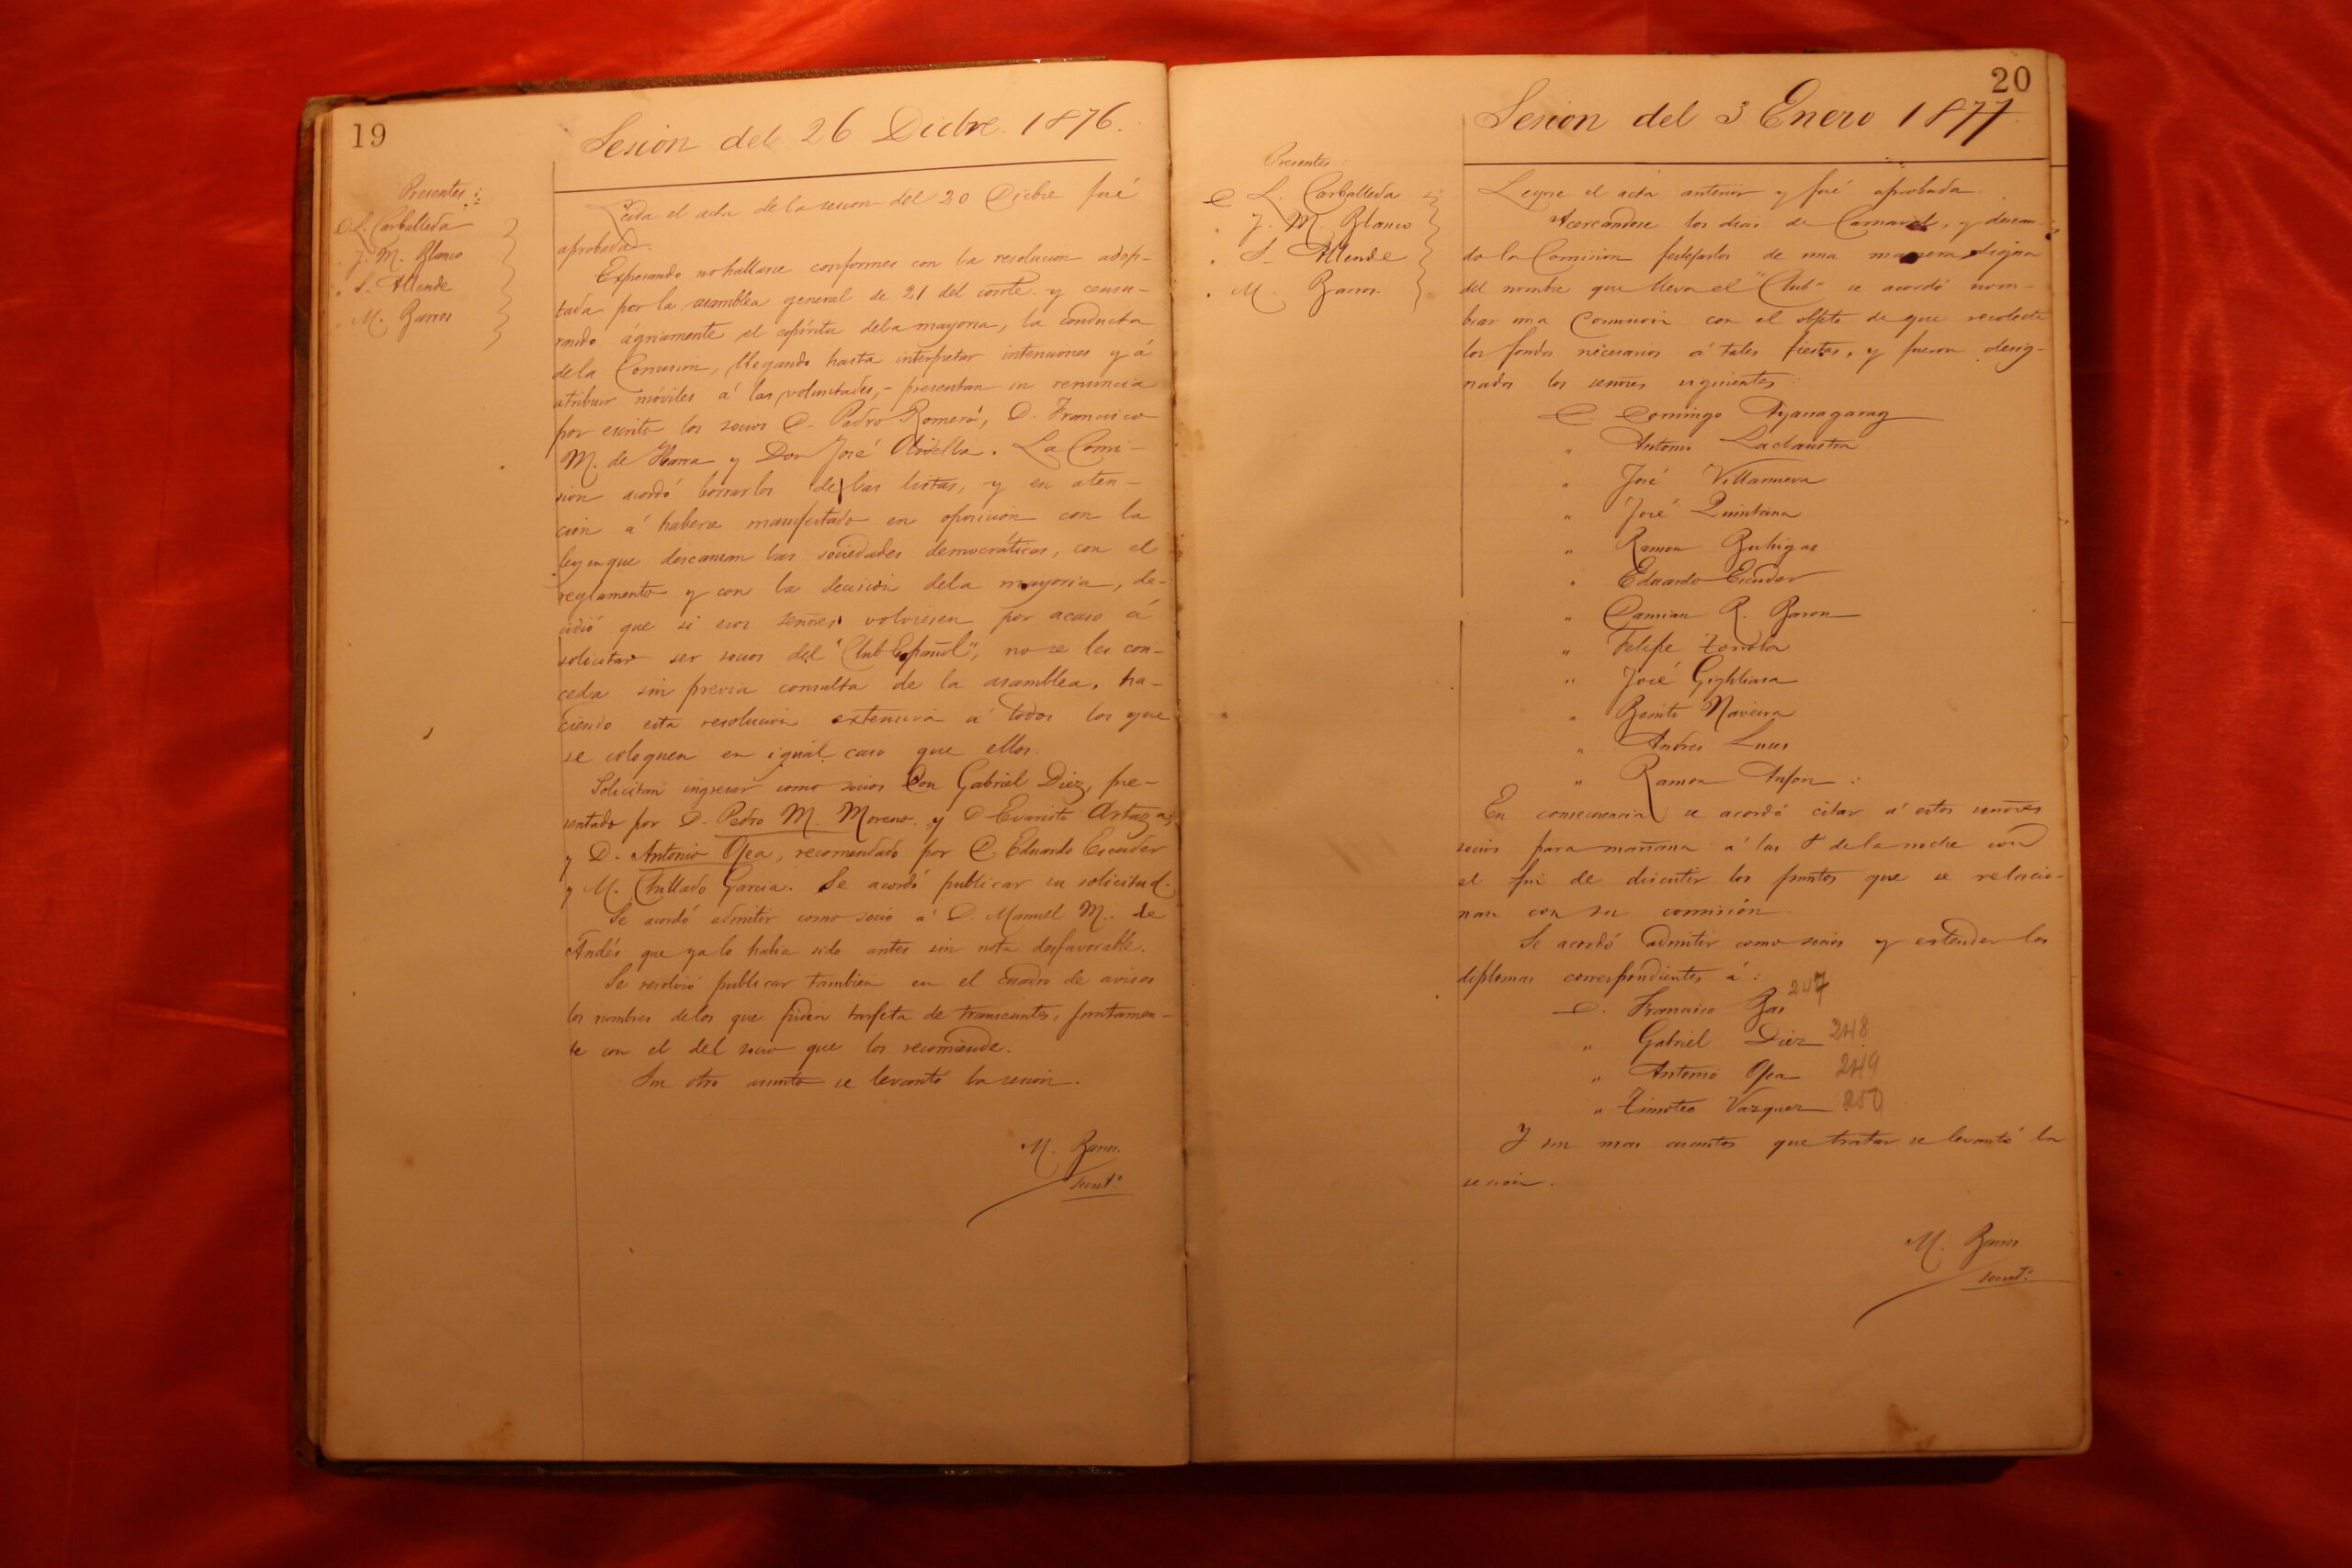 19
Sesion del 26 Dicbre. 1876.
Presentes:
D. L. Carballeda
" J. M. Blanco
" S. Allende
" M. Barros
Leida el acta de la sesion del 20 Dicbre fué
aprobada.
Expresando no hallarse conformes con la resolucion adop-
tada por la asamblea general de 21 del corrte. y censu-
rando ágriamente el espíritu de la mayoria, la conducta
de la Comision, llegando hasta interpretar intenciones y á
atribuir móviles á las voluntades,- presentan su renuncia
por escrito los socios D. Pedro Romero, D. Francisco
M. de Ibarra y Don José. La Comi-
sion acordó borrarlos de las listas, y en aten-
cion á haberse manifestado en oposicion con la
ley en que descansan las sociedades democráticas, con el
reglamento y con la decision de la mayoria, de-
cidió que si esos señores volviesen por acaso á
solicitar ser socios del "Club Español", no se les con-
ceda sin previa consulta de la asamblea, ha-
ciendo esta resolucion extensiva á todos los que
se coloquen en igual caso que ellos.
Solicitan ingresar como socios Don Gabriel Diez, pre-
sentado por D. Pedro M. Moreno y D Evaristo Artaza,
y D. Antonio Ojea, recomendado por D. Eduardo Escuder
y M. Garcia. Se acordó publicar su solicitud.
Se acordó admitir como socio á D. Manuel M. de
Andés que ya lo habia sido antes sin nota desfavorable.
Se resolvió publicar tambien en el cuadro de avisos
los nombres de los que piden tarjeta de transeuntes, juntamen-
te con el del socio que los recomiende.
Sin otro asunto se levantó la sesion.
M. Barros
Secret.º
20
Sesion del 3 Enero 1877
Presentes:
D L. Carballeda
" J. M. Blanco
" S. Allende
" M. Barros.
Leyose el acta anterior y fué aprobada.
Acercandose los dias de Carnaval, y desean-
do la Comision festejarlos de una manera digna
del nombre que lleva el "Club" se acordó nom-
brar una Comision con el objeto de que recolecte
los fondos necesarios á tales fiestas, y fueron desig-
nados los señores siguientes:
D. Domingo Ayarragaray
" Antonio Laclaustra
" José Villanueva
" José Quintana
" Ramon Buhigas
" Eduardo Escuder
" Damian R. Baron
" Felipe Zorroba
" José Gighliasa
" Benito Naveira
" Andres Luces
" Ramon Anfon:
En consecuencia se acordó citar á estos señores
socios para mañana á las 8 de la noche con
el fin de discutir los puntos que se relacio-
nan con su comisión.
Se acordó admitir como socios y estender los
diplomas correspondientes á:
D. Francisco Bas 247
" Gabriel Diez 248
" Antonio Ojea 249
" Timoteo Vazquez 250
Y sin mas asuntos que tratar se levantó la
sesion.
M. Barros
Secret.º